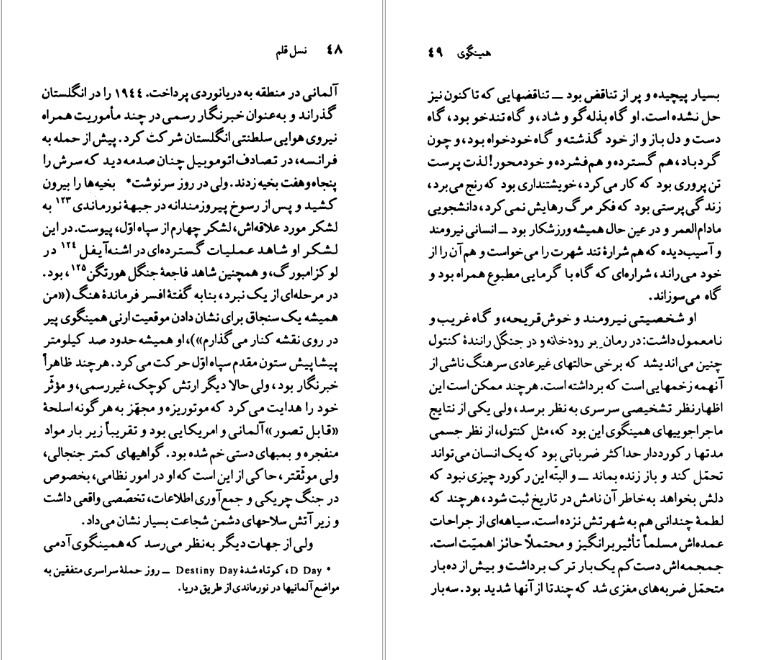 ۴۸ نسل قلم
آلمانی در منطقه به دریانوردی پرداخت. ۱۹۴۴ را در انگلستان
گذراند و به‌عنوان خبرنگار رسمی در چند مأموریت همراه
نیروی هوایی سلطنتی انگلستان شرکت کرد. پیش از حمله به
فرانسه، در تصادف اتوموبیل چنان صدمه دید که سرش را
پنجاه‌وهفت بخیه زدند. ولی در روز سرنوشت* بخیه‌ها را بیرون
کشید و پس از رسوخ پیروزمندانه در جبههٔ نورماندی۱۲۳ به
لشکر مورد علاقه‌اش، لشکر چهارم از سپاه اوّل، پیوست. در این
لشکر او شاهد عملیات گسترده‌ای در اشنه‌آیفل۱۲۴ در
لوکزامبورگ، و همچنین شاهد فاجعهٔ جنگل هورتگن۱۲۵، بود.
در مرحله‌ای از یک نبرد، بنابه گفتهٔ افسر فرماندهٔ هنگ («من
همیشه یک سنجاق برای نشان دادن موقعیت ارنی همینگوی پیر
در روی نقشه کنار می‌گذارم»)، او همیشه حدود صد کیلومتر
پیشاپیش ستون مقدم سپاه اوّل حرکت می‌کرد. هرچند ظاهراً
خبرنگار بود، ولی حالا دیگر ارتش کوچک، غیررسمی، و مؤثّر
خود را هدایت می‌کرد که موتوریزه و مجهّز به هر گونه اسلحهٔ
«قابل تصور» آلمانی و امریکایی بود و تقریباً زیر بار مواد
منفجره و بمبهای دستی خم شده بود. گواهیهای کمتر جنجالی،
ولی موثّقتر، حاکی از این است که او در امور نظامی، بخصوص
در جنگ چریکی و جمع‌آوری اطلاعات، تخصّصی واقعی داشت
و زیر آتش سلاحهای دشمن شجاعت بسیار نشان می‌داد.
ولی از جهات دیگر به‌نظر می‌رسد که همینگوی آدمی
* D Day، کوتاه شدهٔ Destiny Day ــ روز حملهٔ سراسری متفقین به
مواضع آلمانیها در نورماندی از طریق دریا.
همینگوی ۴۹
بسیار پیچیده و پر از تناقض بود ــ تناقضهایی که تاکنون نیز
حل نشده است. او گاه بذله‌گو و شاد، و گاه تندخو بود، گاه
دست و دل باز و از خود گذشته و گاه خودخواه بود، و چون
گردباد، هم گسترده و هم فشرده و خودمحور! لذت پرست
تن پروری بود که کار می‌کرد، خویشتنداری بود که رنج می‌برد،
زندگی‌پرستی بود که فکر مرگ رهایش نمی‌کرد، دانشجویی
مادام‌العمر و در عین حال همیشه ورزشکار بود ــ انسانی نیرومند
و آسیب‌دیده که هم شرارهٔ تند شهرت را می‌خواست و هم آن را از
خود می‌راند، شراره‌ای که گاه با گرمایی مطبوع همراه بود و
گاه می‌سوزاند.
او شخصیتی نیرومند و خوش‌قریحه، و گاه غریب و
نامعمول داشت: در رمان بر رودخانه و در جنگل رانندهٔ کنتول
چنین می‌اندیشد که برخی حالتهای غیرعادی سرهنگ ناشی از
آنهمه زخمهایی است که برداشته است. هرچند ممکن است این
اظهارنظر تشخیصی سرسری به نظر برسد، ولی یکی از نتایج
ماجراجوییهای همینگوی این بود که، مثل کنتول، از نظر جسمی
مدتها رکورددار حداکثر ضرباتی بود که یک انسان می‌تواند
تحمّل کند و باز زنده بماند ــ و البتّه این رکورد چیزی نبود که
دلش بخواهد به‌خاطر آن نامش در تاریخ ثبت شود، هرچند که
لطمهٔ چندانی هم به شهرتش نزده است. سیاهه‌ای از جراحات
عمده‌اش مسلماً تأثیربرانگیز و محتملاً حائز اهمیّت است.
جمجمه‌اش دست‌کم یک‌بار ترک برداشت و بیش از ده‌بار
متحمّل ضربه‌های مغزی شد که چندتا از آنها شدید بود. سه‌بار